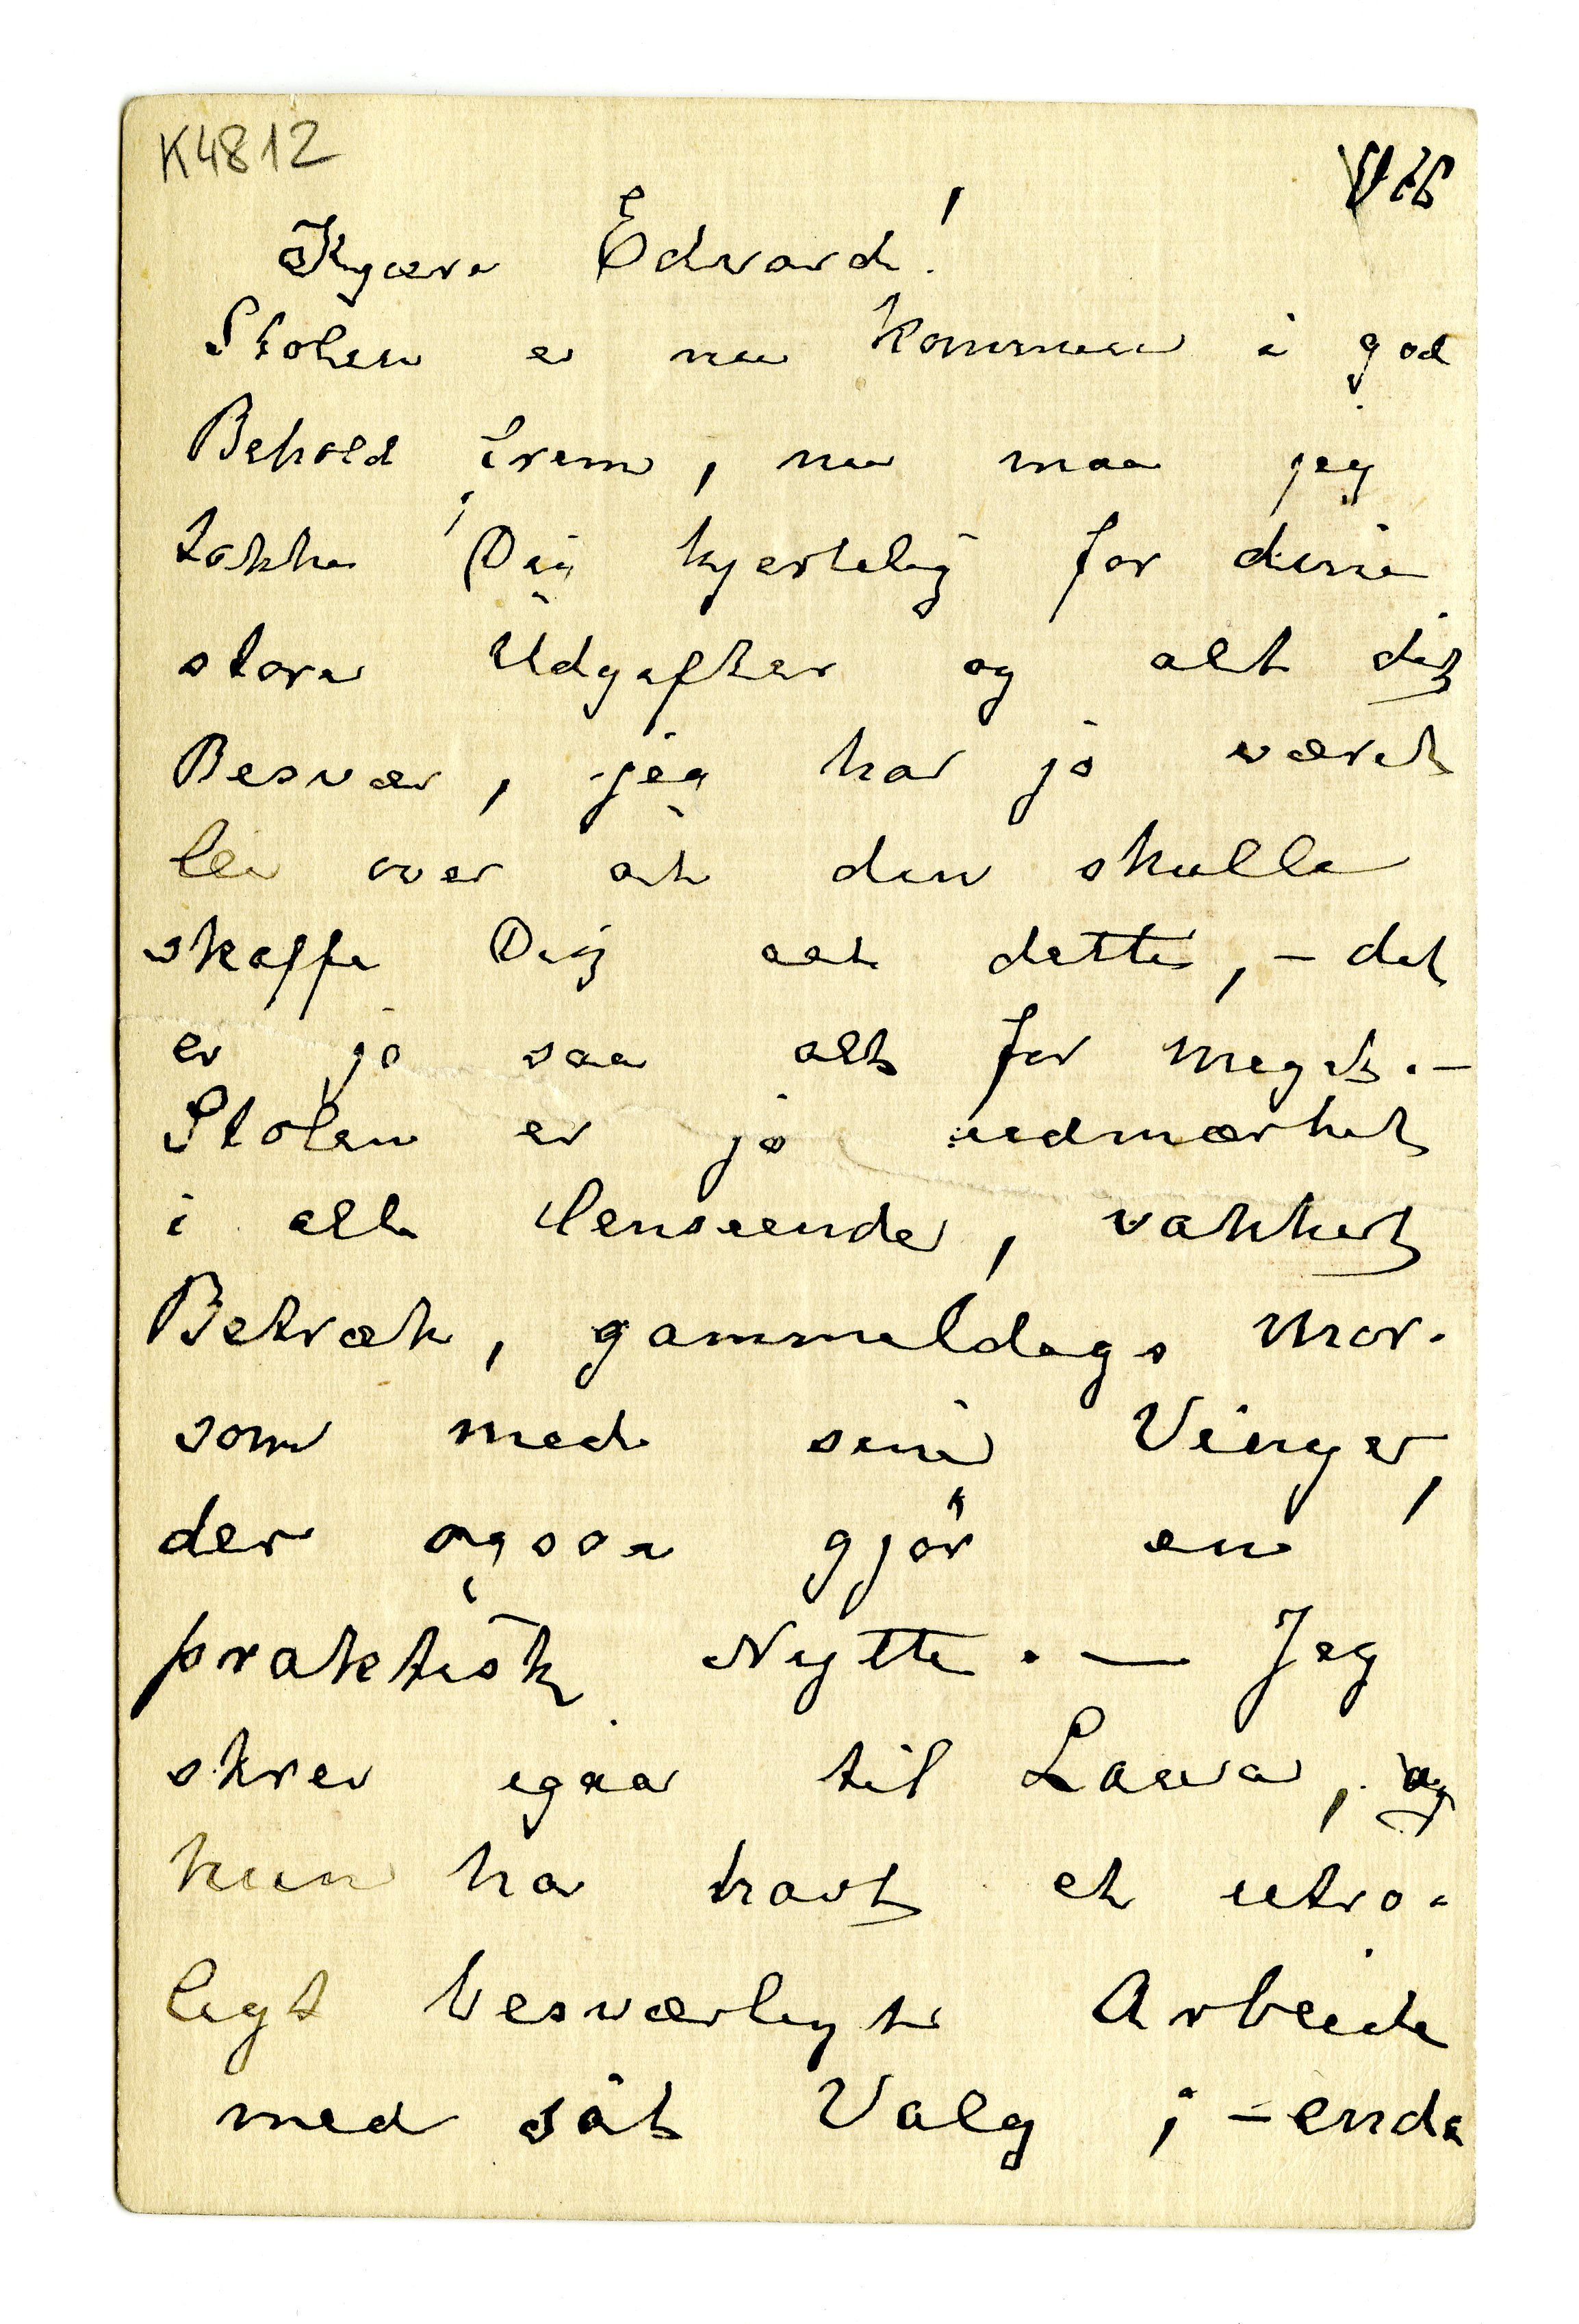 K4812
Kjære Edvard!
Stolen er nu kommen i god
Behold frem, nu maa jeg
takke Dig hjertelig for dine
store Udgifter og alt dit
Besvær, jeg har jo været
lei over at den skulle
skaffe Dig alt dette, – det
er jo saa alt for meget. –
Stolen er jo udmærket
i alle Henseende, vakkert
Betræk, gammeldags mor-
som med sine Vinger,
der ogsaa gjør en
praktisk Nytte. — Jeg
skrev igaar til Laura, og
hun har havt et utro-
ligt besværligt Arbeide
med sit Valg; – enda